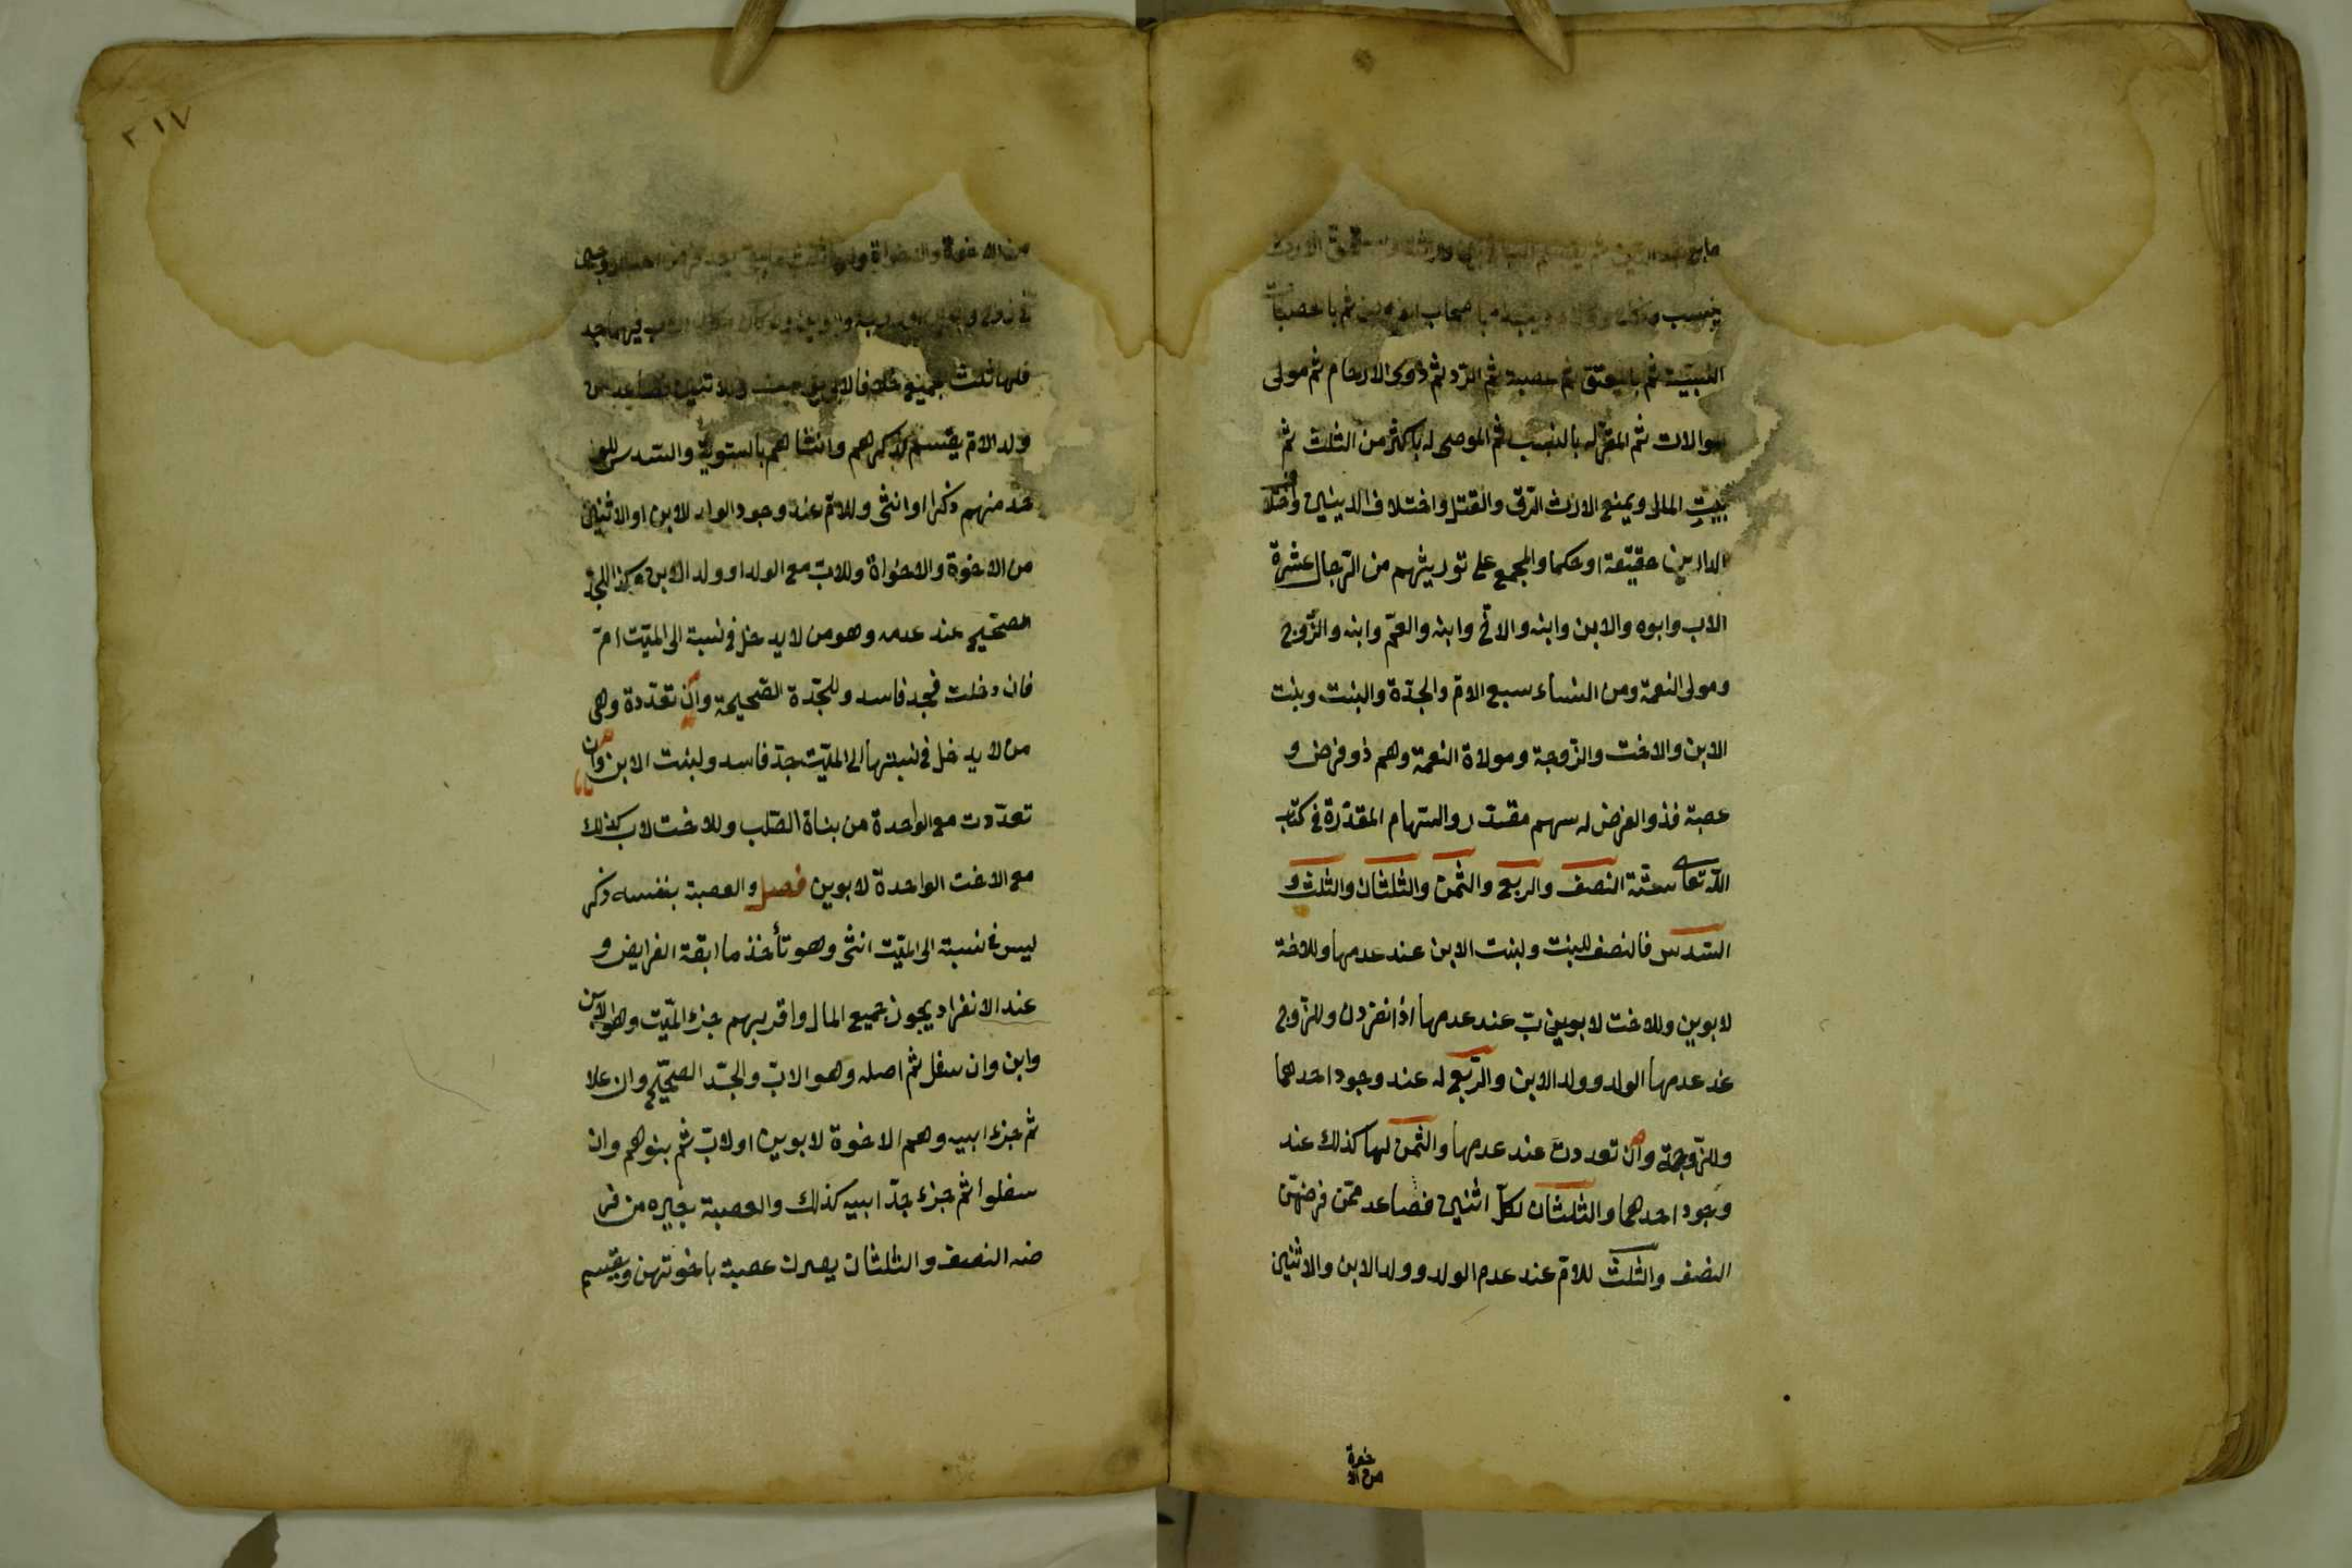 ما بقى بعد الدين ثم يقسم الباقى بين ورثته ويستحق الارث
بنسب ونكاح وولاء ويبدء باصحاب الفروض ثم بالعصبات
النسبية ثم بالمعتق ثم عصبته ثم الرد ثم ذوى الارحام ثم مولى
الموالات ثم المقر له بالنسب ثم الموصى له باكثر من الثلث ثم
بيت المال ويمنع الارث الرق والقتل واختلاف الدينين واختلاف
الدارين حقيقة او حكما والمجمع على توريثهم من الرجال عشرة
الاب وابوه والابن وابنه والاخ وابنه والعم وابنه والزوج
ومولى النعمة ومن النساء سبع الام والجدة والبنت وبنت
الابن والاخت والزوجة ومولاة النعمة وهم ذو فرض و
عصبة فذو الفرض له سهم مقدر والسهام المقدرة فى كتاب
الله تعالى ستة النصف والربع والثمن والثلثان والثلث و
السدس فالنصف للبنت ولبنت الابن عند عدمها وللاخة
لابوين وللاخت لابوين ب عند عدمها اذا نفردن وللزوج
عند عدمها الولد وولد الابن والربع له عند وجود احدهما
وللزوجة وان تعددت عند عدمها والثمن لها كذلك عند
وجود احدهما والثلثان لكل اثنين فصاعد ممن فرضهن
النصف والثلث للام عند عدم الولد وولد الابن والاثنين
من الاخوة
٢١٧
من الاخوة والاخواة ولها ثلث ما بقى بعد فرض احد الزوجين
فى زوج وابوين او زوجة وابوين ولو كان مكان الاب فيهما جد
فلها ثلث جميع خلافا لابى يوسف وللاثنين فصاعد من
ولد الام يقسم لذكرهم وانثاهم بالسوية والسدس للوا
حد منهم ذكرا او انثى وللام عند وجود الولد للابن او الاثنين
من الاخوة والاخواة وللاب مع الولد او ولد الابن وكذا للجد
الصحيح عند عدمه وهو من لا يدخل فى نسبة الى الميت ام
فان دخلت فجد فاسد وللجدة الصحيحة وان تعددة وهى
من لا يدخل فى نسبتها الى الميت جد فاسد ولبنت الابن وان
تعددت مع الواحدة من بناة الصلب وللاخت لاب كذلك
مع الاخت الواحدة لابوين فصل والعصبة بنفسه ذكر
ليس فى نسبة الى الميت انثى وهو تأخذ ما ابقة الفرايض و
عند الانفراد يجوز جميع المال واقربهم جزء الميت وهو الابن
وابن وان سفل ثم اصله وهو الاب والجد الصحيح وان علا
ثم جزء ابيه وهم الاخوة لابوين او لاب ثم بنوهم وان
سفلوا ثم جزء جد ابيه كذلك والعصبة بغيره من فر
ضه النصف والثلثان يصرن عصبة باخوتهن ويقسم